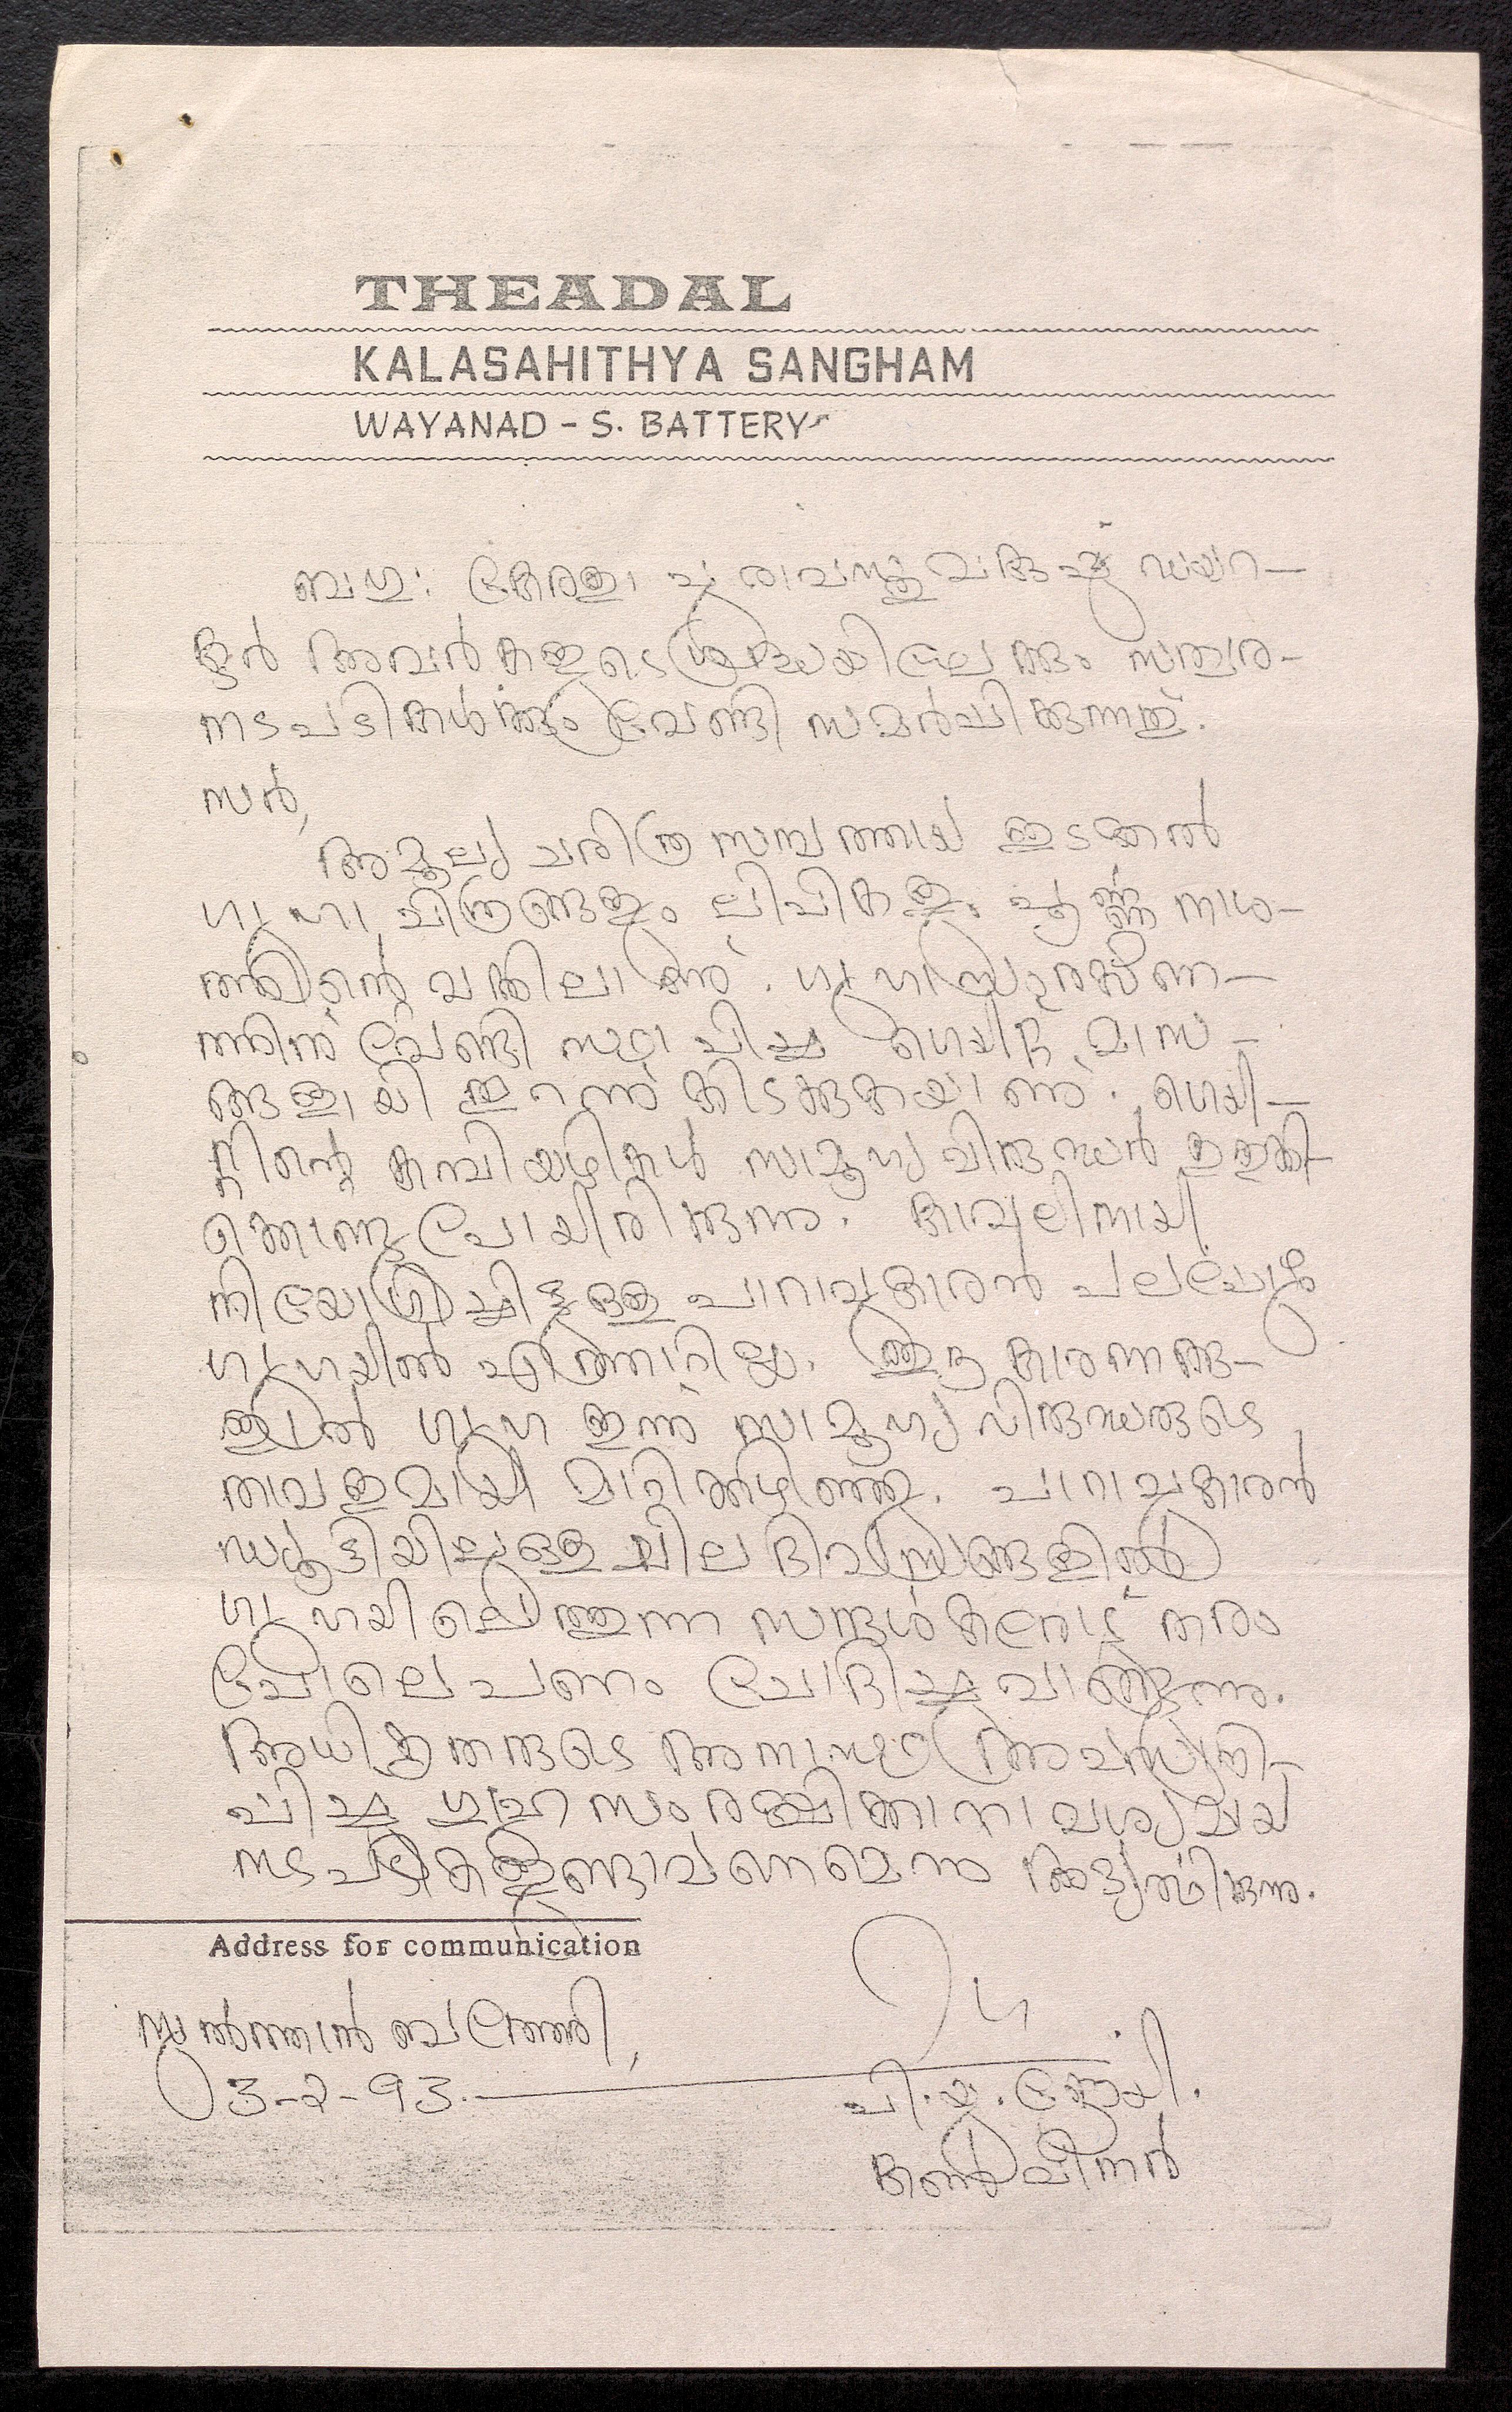 THEADAL
KALASAHITHYA SANGHAM
WAYANAD - S. BATTERY
ബഹു: കേരള പുരാവസ്തു വകുപ്പു ഡയറ-
ക്ടർ അവർകളുടെ ശ്രദ്ധയിലേക്കും സത്വര-
നടപടികൾക്കും വേണ്ടി സമർപ്പിക്കുന്നത്.
സർ,
അമൂല്യ ചരിത്ര സമ്പത്തായ ഇടക്കൽ
ഗുഹാ ചിത്രങ്ങളും ലിപികളും പൂർണ്ണ നാശ-
ത്തിന്റെ വക്കിലാണ്. ഗുഹാസംരക്ഷണ-
ത്തിന് വേണ്ടി സ്ഥാപിച്ച ഗെയിറ്റ് മാസ-
ങ്ങളായി തുറന്ന് കിടക്കുകയാണ്. ഗെയി-
റ്റിന്റെ കമ്പിയഴികൾ സാമൂഹ്യ വിരുദ്ധർ ഇളക്കി-
ക്കൊണ്ടു പോയിരിക്കുന്നു. കാവലിനായി
നിയോഗിച്ചിട്ടുള്ള പാറാവുകാരൻ പലപ്പോഴും
ഗുഹയിൽ എത്താറില്ല. ഇക്കാരണങ്ങ-
ളാൽ ഗുഹ ഇന്നു സാമൂഹ്യ വിരുദ്ധരുടെ
താവളമായി മാറിക്കഴിഞ്ഞു. പാറാവുകാരൻ
ഡ്യൂട്ടിയിലുള്ള ചില ദിവസങ്ങളിൽ
ഗുഹയിലെത്തുന്ന സന്ദർശകരോട് തരം
പോലെ പണം ചോദിച്ചു വാങ്ങുന്നു.
അധികൃതരുടെ അനാസ്ഥ അവസാനി-
പ്പിച്ച് ഗുഹ സംരക്ഷിക്കാനാവശ്യമായ
നടപടികളുണ്ടാവണമെന്നു അഭ്യർത്ഥിക്കുന്നു.
Address for communication
സുൽത്താൻ ബത്തേരി,
3-2-93.
പി. കെ. ജോയി.
കൺവീനർ